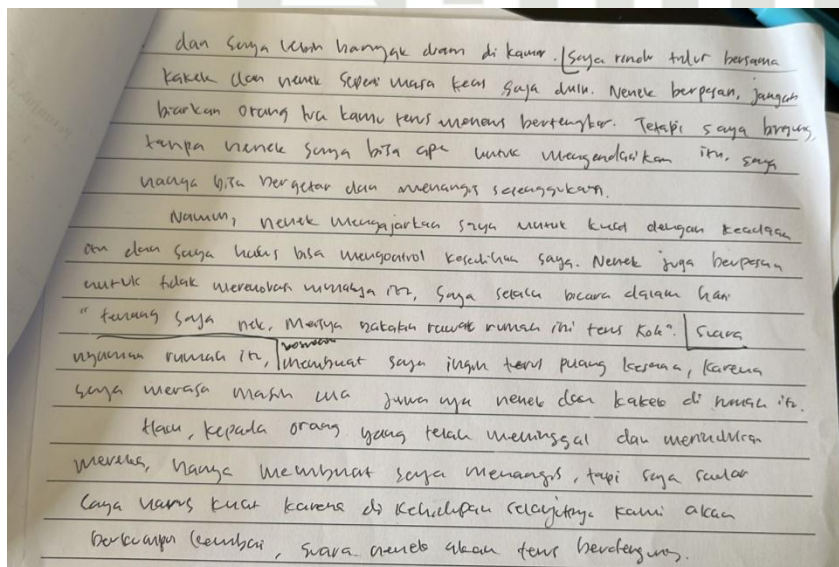 dan saya lebih banyak diam di kamar. Saya rindu tidur bersama
kakek dan nenek seperti masa kecil saya dulu. Nenek berpesan, jangan
biarkan orang tua kamu terus menerus bertengkar. Tetapi saya bingung,
tanpa nenek saya bisa apa untuk mengendalikan itu, saya
hanya bisa bergetar dan menangis sesenggukan.
Namun, nenek mengajarkan saya untuk kuat dengan keadaan
dan saya harus bisa mengontrol kesedihan saya. Nenek juga berpesan
untuk tidak merenovasi rumahnya itu, saya selalu bicara dalam hati
"tenang saja nek, Marsya bakalan rawat rumah ini terus kok". Suara
nyaman rumah itu, membuat saya ingin terus pulang kesana, karena
saya merasa masih ada jiwa nya nenek dan kakek di rumah itu.
kepada orang yang telah meninggal dan merindukan
mereka, hanya membuat saya menangis, tapi saya sadar
saya harus kuat karena di kehidupan selanjutnya kami akan
berkumpul kembali, suara nenek akan terus berdengung.